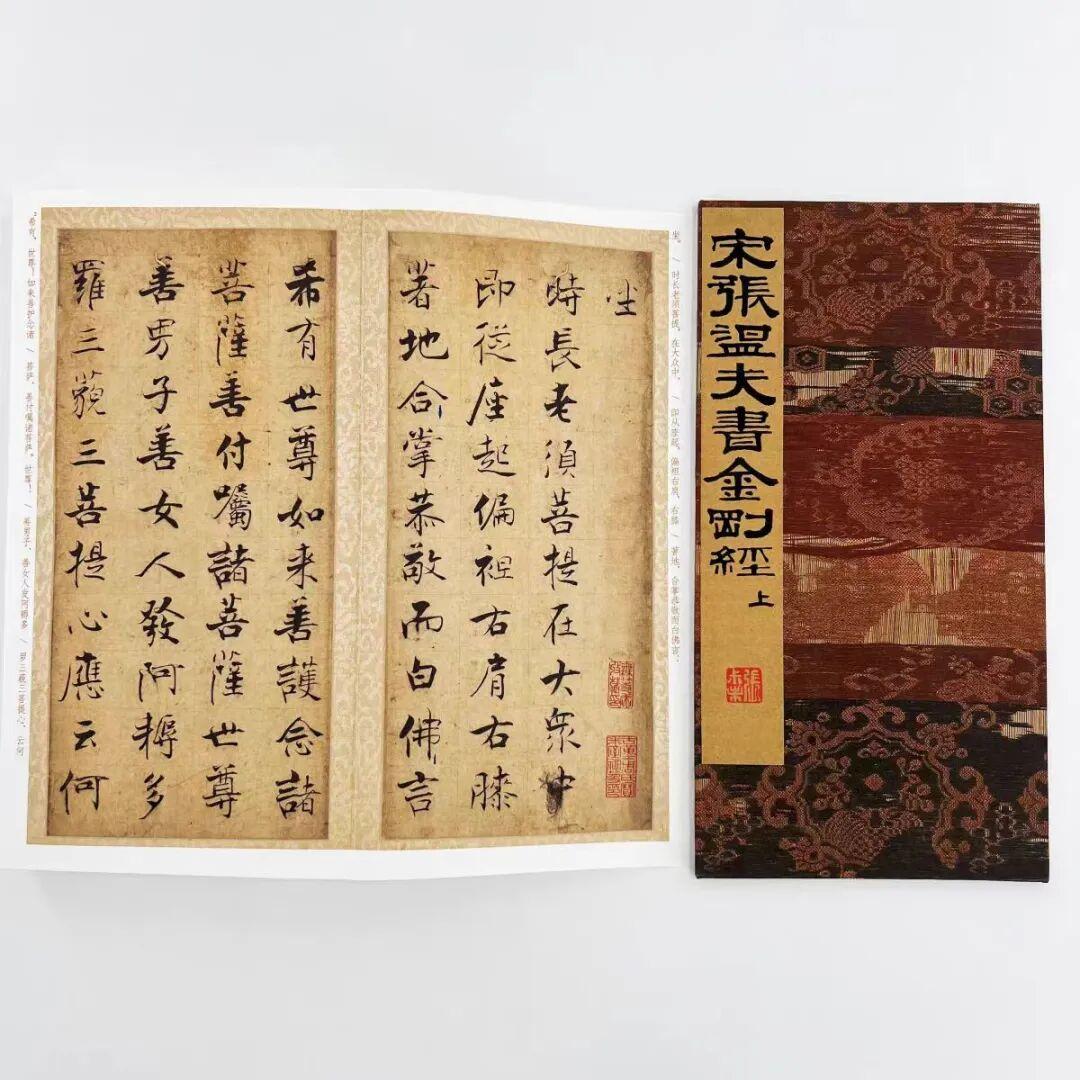 宋張温夫書金剛經
上
坐
時長老須菩提在大眾中
即從座起偏袒右肩右膝
著地合掌恭敬而白佛言
希有世尊如来善護念諸
菩薩善付囑諸菩薩世尊
善男子善女人發阿耨多
羅三藐三菩提心應云何
坐。/时长老须菩提,在大众中,/即从座起,偏袒右肩,右膝/著地,合掌恭敬而白佛言:
“希有,世尊!如来善护念诸/菩萨,善付嘱诸菩萨。世尊!/善男子、善女人发阿耨多/罗三藐三菩提心,云何